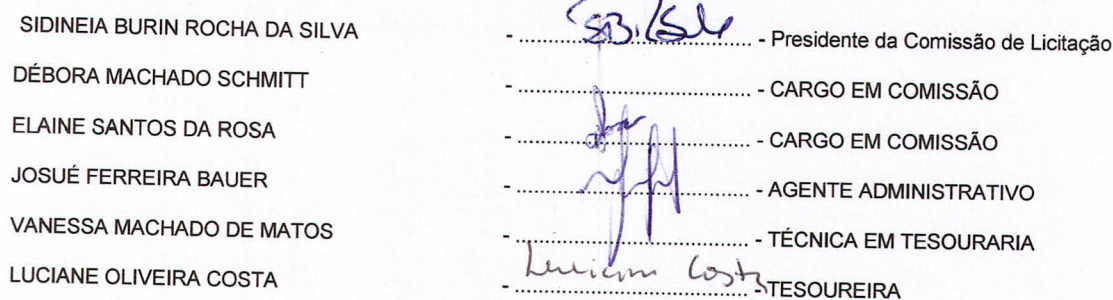 SIDINEIA BURIN ROCHA DA SILVA - ........................................ - Presidente da Comissão de Licitação
DÉBORA MACHADO SCHMITT - ........................................ - CARGO EM COMISSÃO
ELAINE SANTOS DA ROSA - ........................................ - CARGO EM COMISSÃO
JOSUÉ FERREIRA BAUER - ........................................ - AGENTE ADMINISTRATIVO
VANESSA MACHADO DE MATOS - ........................................ - TÉCNICA EM TESOURARIA
LUCIANE OLIVEIRA COSTA - ........................................ Costa TESOUREIRA